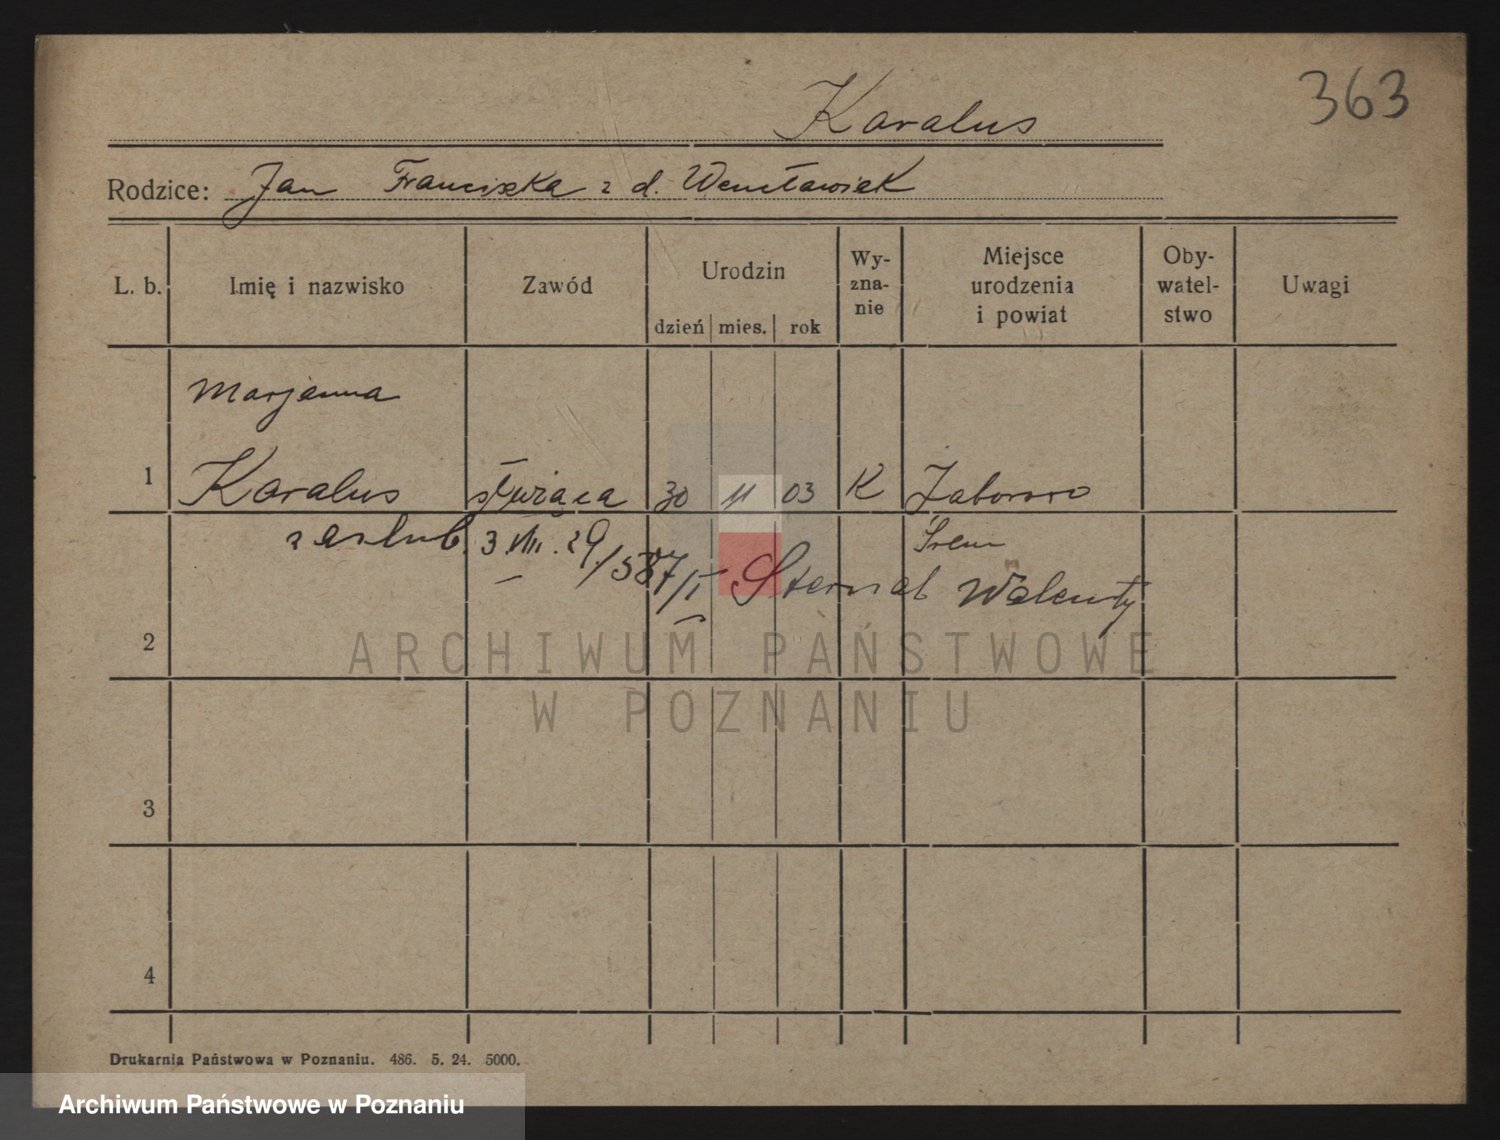 363
Karalus
Rodzice: Jan Franciszka z d. Wencławiak
L. b. Imię i nazwisko Zawód Urodzin dzień mies. rok Wy-zna-nie Miejsce urodzenia i powiat Oby-watel-stwo Uwagi
Marjanna
1 Karalus służąca 30 11 03 K Zaborowo
zaślub. 3 VIII. 29/587/I Śrem
Sternal Walenty
2
ARCHIWUM PAŃSTWOWE
W POZNANIU
3
4
Drukarnia Państwowa w Poznaniu. 486. 5. 24. 5000.
Archiwum Państwowe w Poznaniu